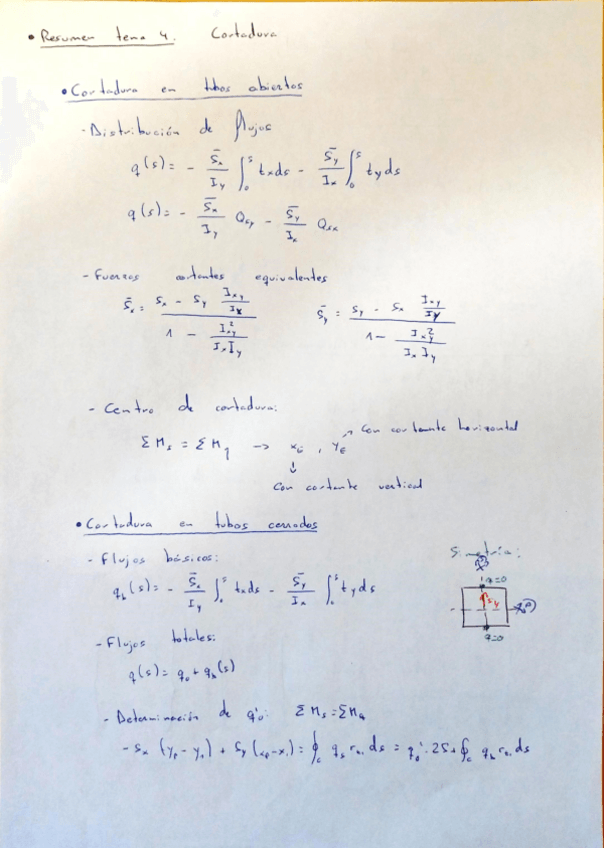 • Resumen tema 4. Cortadura
• Cortadura en tubos abiertos
- Distribución de flujos
q(s) = - S̄x/Iy ∫₀ˢ t x ds - S̄y/Ix ∫₀ˢ t y ds
q(s) = - S̄x/Iy Qsy - S̄y/Ix Qsx
- Fuerzas cortantes equivalentes
S̄x = (Sx - Sy Ixy/Ix) / (1 - Ixy²/(Ix Iy))    S̄y = (Sy - Sx Ixy/Iy) / (1 - Ixy²/(Ix Iy))
- Centro de cortadura:
ΣMs = ΣMq → xE , yE → Con cortante horizontal
↓
Con cortante vertical
• Cortadura en tubos cerrados
- Flujos básicos:
Simetría:
qb(s) = - S̄x/Iy ∫₀ˢ t x ds - S̄y/Ix ∫₀ˢ t y ds
q=0
Sy
q=0
- Flujos totales:
q(s) = q₀ + qb(s)
- Determinación de q'₀: ΣMs = ΣMq